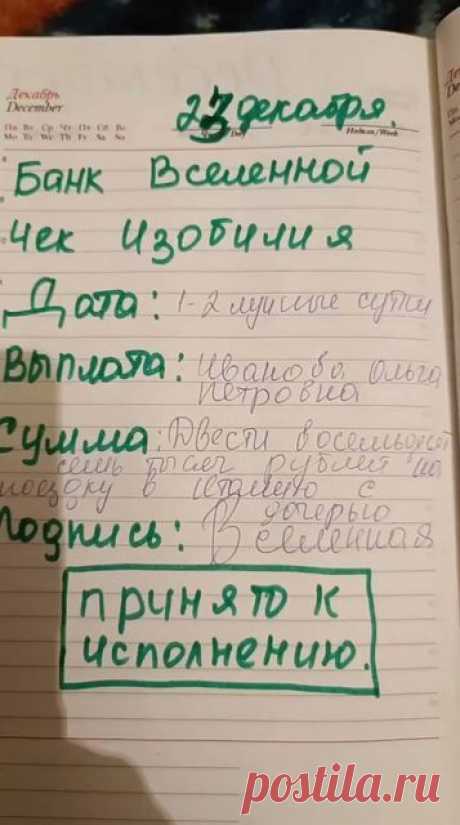 Декабрь
December
23 декабря,
Пн Вт Ср Чт Пт Сб Вс
Mo Tu We Th Fr Sa Su
Day
Неделя/Week
Банк Вселенной
Чек Изобилия
Дата: 1-2 лунные сутки
Выплата: Иванова Ольга
Петровна
Сумма: Двести восемьдесят
семь тысяч рублей на
поездку в Италию с
дочерью
Подпись: Вселенная
принято к
исполнению.
postila.ru